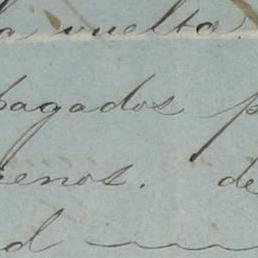 la vuelta.
pagados p
enos. de
d